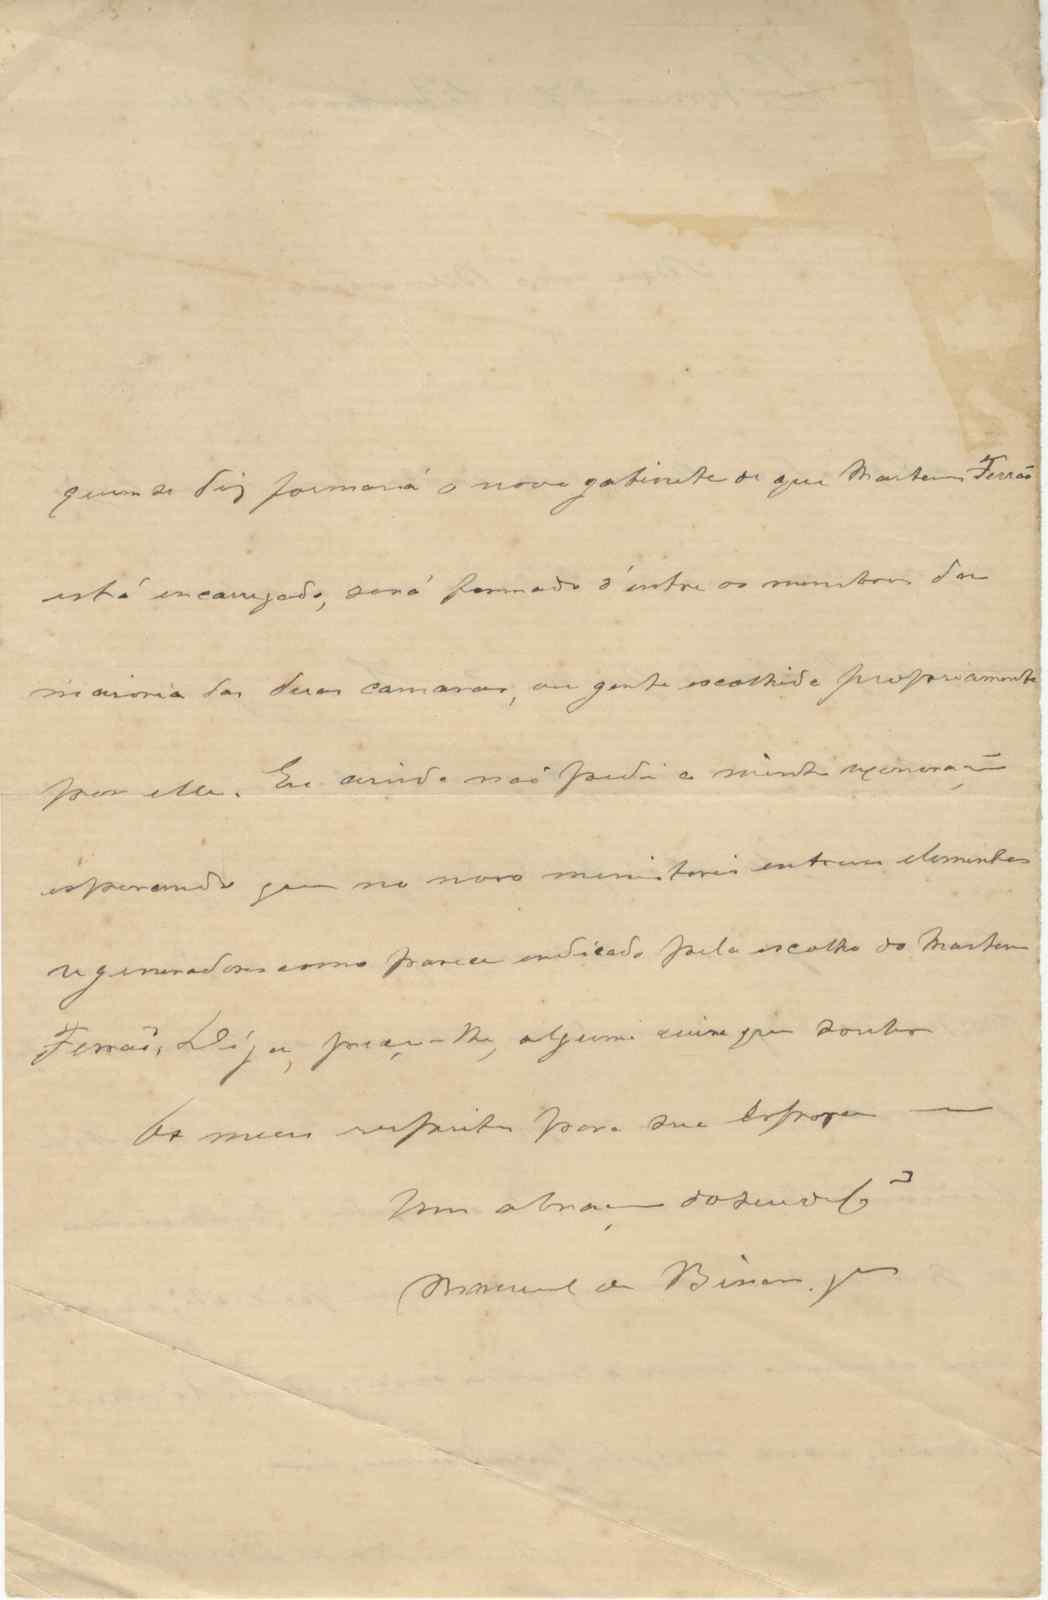 quem se diz formará o novo gabinete de que Martens Ferrão
está encarregado, será formado d'entre os membros da
maioria das duas camaras, ou gente escolhida propriamente
por elle. Eu ainda não pedi a minha exoneração
esperando que no novo ministerio entrem elementos
regeneradores como parece indicado pela escolha do Martens
Ferrão. Diga, peço-lhe, alguma cousa que souber
Os meus respeitos para sua Esposa —
Um abraço do seu
Manuel de